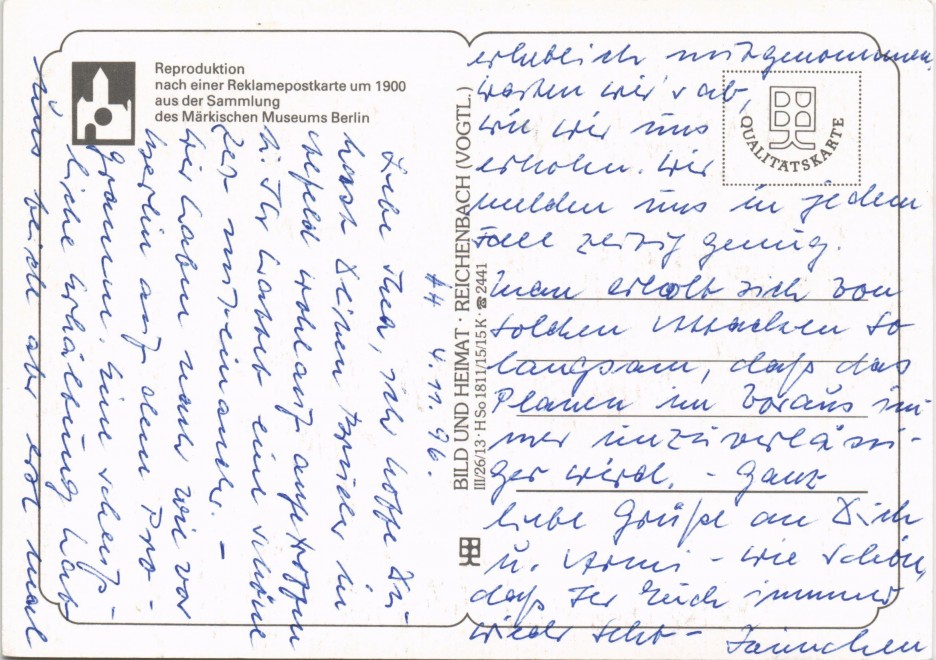 Reproduktion
nach einer Reklamepostkarte um 1900
aus der Sammlung
des Märkischen Museums Berlin
4. 11. 96.
Liebe Thea, ich hoffe Du
hast Deinen Bruder in
wohlauf angetroffen
u. Ihr hattet eine schöne
Zeit miteinander. –
Wir haben nach wie vor
Berlin auf dem Pro-
gramm. Eine scheuß-
liche Erkältung hat
uns beide aber erst mal
BILD UND HEIMAT · REICHENBACH (VOGTL.)
III/26/13 · H So 1811/15/15 K · ☎ 2441
QUALITÄTSKARTE
erheblich mitgenommen.
Warten wir's ab,
wie wir uns
erholen. Wir
melden uns in jedem
Fall zeitig genug.
Man erholt sich von
solchen Attacken so
langsam, daß das
Planen im Voraus im
mer unzuverlässi-
ger wird. – Ganz
liebe Grüße an Dich
u. – wie schön,
daß Ihr Euch immer
wieder seht –